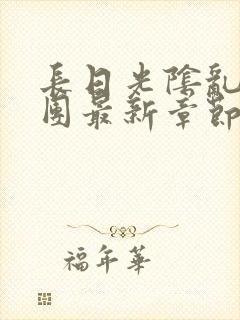 長日光陰亂
團最新章節
福年華